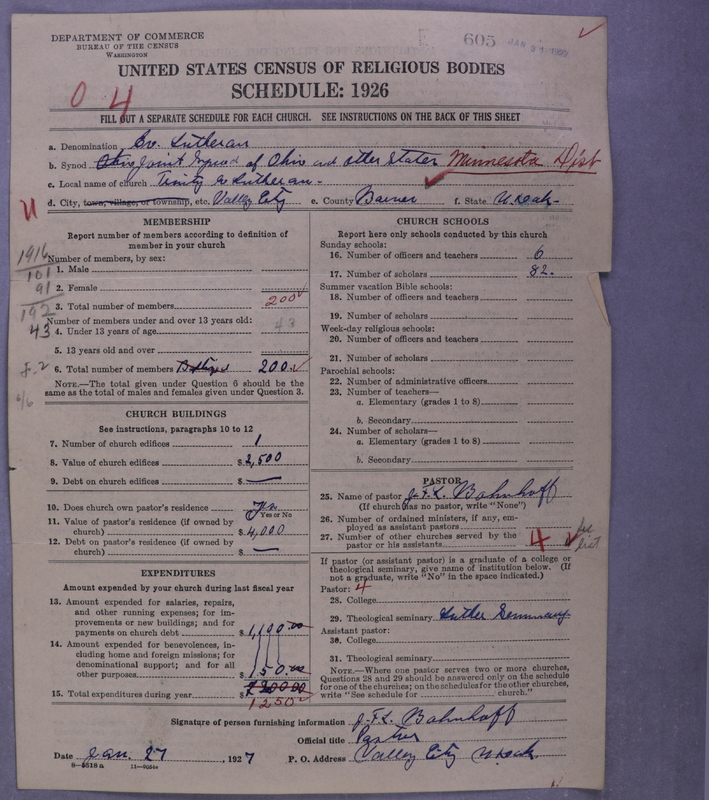 DEPARTMENT OF COMMERCE
BUREAU OF THE CENSUS
WASHINGTON
605 JAN 31 1927
UNITED STATES CENSUS OF RELIGIOUS BODIES
SCHEDULE: 1926
0 4
FILL OUT A SEPARATE SCHEDULE FOR EACH CHURCH. SEE INSTRUCTIONS ON THE BACK OF THIS SHEET
a. Denomination Ev. Lutheran
b. Synod Ohio Joint Synod of Ohio and other States Minnesota Dist
c. Local name of church Trinity Ev Lutheran.
d. City, town, village, or township, etc. Valley City e. County Barnes f. State N. Dak.
MEMBERSHIP
Report number of members according to definition of
member in your church
1916
101
91
192
43
Number of members, by sex:
1. Male
2. Female
3. Total number of members 200
Number of members under and over 13 years old:
4. Under 13 years of age 43
5. 13 years old and over
6. Total number of members Baptized 200.
NOTE.—The total given under Question 6 should be the
same as the total of males and females given under Question 3.
CHURCH BUILDINGS
See instructions, paragraphs 10 to 12
7. Number of church edifices 1
8. Value of church edifices $ 2,500
9. Debt on church edifices $ —
10. Does church own pastor's residence Yes
Yes or No
11. Value of pastor's residence (if owned by
church) $ 4,000
12. Debt on pastor's residence (if owned by
church) $ —
EXPENDITURES
Amount expended by your church during last fiscal year
13. Amount expended for salaries, repairs,
and other running expenses; for im-
provements or new buildings; and for
payments on church debt $ 1,100.00
14. Amount expended for benevolences, in-
cluding home and foreign missions; for
denominational support; and for all
other purposes $ 150.00
15. Total expenditures during year $
1250
CHURCH SCHOOLS
Report here only schools conducted by this church
Sunday schools:
16. Number of officers and teachers 6
17. Number of scholars 82.
Summer vacation Bible schools:
18. Number of officers and teachers
19. Number of scholars
Week-day religious schools:
20. Number of officers and teachers
21. Number of scholars
Parochial schools:
22. Number of administrative officers
23. Number of teachers—
a. Elementary (grades 1 to 8)
b. Secondary
24. Number of scholars—
a. Elementary (grades 1 to 8)
b. Secondary
PASTOR
25. Name of pastor J.F.L. Bahnhoff
(If church has no pastor, write "None")
26. Number of ordained ministers, if any, em-
ployed as assistant pastors
27. Number of other churches served by the
pastor or his assistants 4
If pastor (or assistant pastor) is a graduate of a college or
theological seminary, give name of institution below. (If
not a graduate, write "No" in the space indicated.)
Pastor: 4
28. College
29. Theological seminary Luther Seminary
Assistant pastor:
30. College
31. Theological seminary
NOTE.—Where one pastor serves two or more churches,
Questions 28 and 29 should be answered only on the schedule
for one of the churches; on the schedules for the other churches,
write "See schedule for church."
Signature of person furnishing information J.F.L. Bahnhoff
Official title Pastor
Date Jan. 27, 1927 P. O. Address Valley City N. Dak.
8—5518a 11—9054